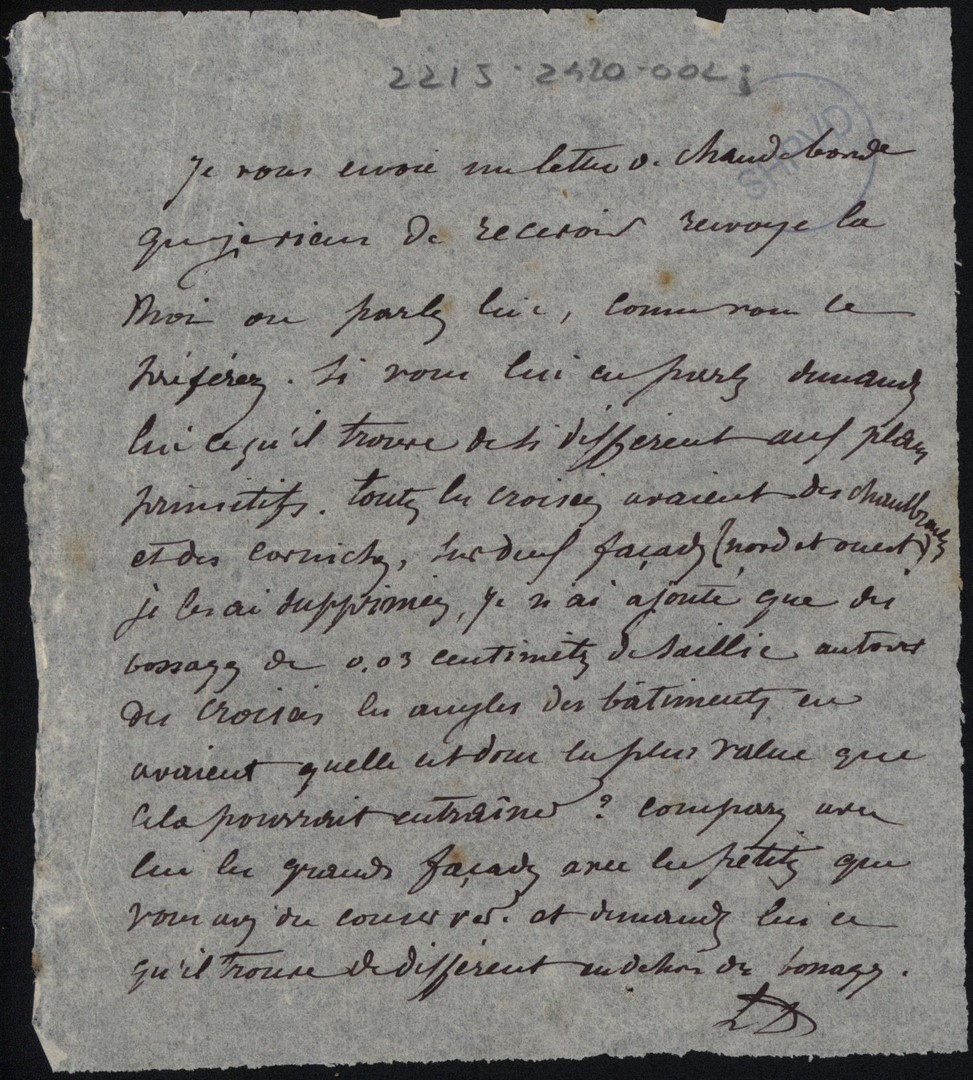 221J-2420-002
SHPVD
Je vous envoie une lettre de chaudeborde
que je viens de recevoir renvoyé la
moi ou parlez lui, comme vous le
préférez. Si vous lui en parlez demandez
lui ce qu'il trouve de si différent aux plans
primitifs. toutes les croisées avaient des chambranles
et des corniches, sur deux façades (nord et ouest)
je les ai supprimées, je n'ai ajouté que des
bossages de 0,03 centimètres de saillie autour
des croisées les angles des bâtiments en
avaient quelle est donc la plus value que
cela pourrait entraîner ? comparez avec
lui les grandes façades avec les petites que
vous avez du conserver. et demandez lui ce
qu'il trouve de différent en dehors des bossages.
LD